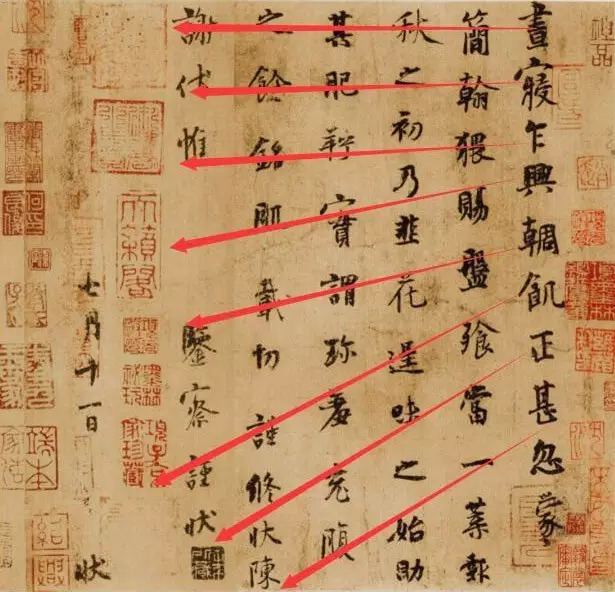 神品
晝寢乍興輖飢正甚忽蒙
簡翰猥賜盤飧當一葉報
秋之初乃韭花逞味之始助
其肥羜實謂珍羞充腹
之餘銘肌載切謹修狀陳
謝伏惟鑒察謹狀
天籟閣
項子京家珍藏
七月十一日 狀